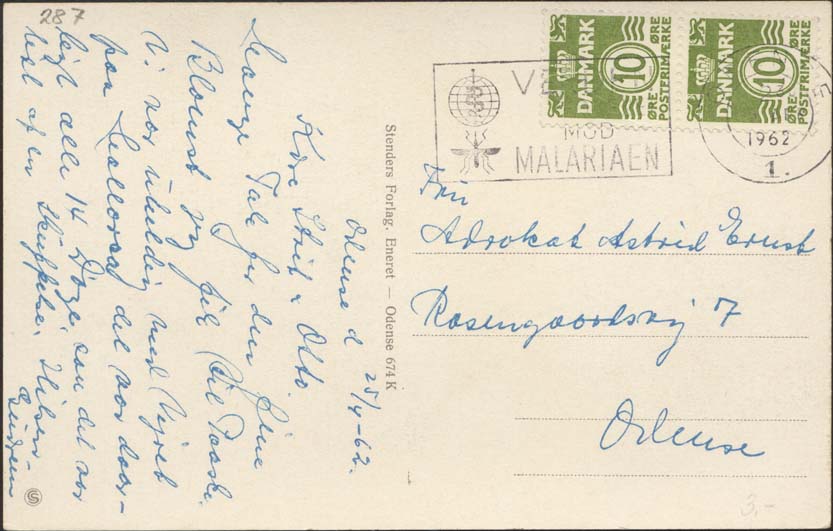 287
Odense d 25/4-62.
Kære Strit & Otto.
Mange Tak for den fine
Blomst jeg fik til Paaske.
Vi var uheldig med Vejret
paa Mallorca det var daar-
ligt alle 14 Dage, saa det var
lidt af en skuffelse. Hilsen
Stenders Forlag. Eneret — Odense 674 K
DANMARK
10
ØRE
POSTFRIMÆRKE
ØRE
DANMARK
10
ØRE
POSTFRIMÆRKE
ØRE
MOD
MALARIAEN
1962
1.
Fru
Advokat Astrid Ernst
Rosengaardsvej 7
Odense
3.-